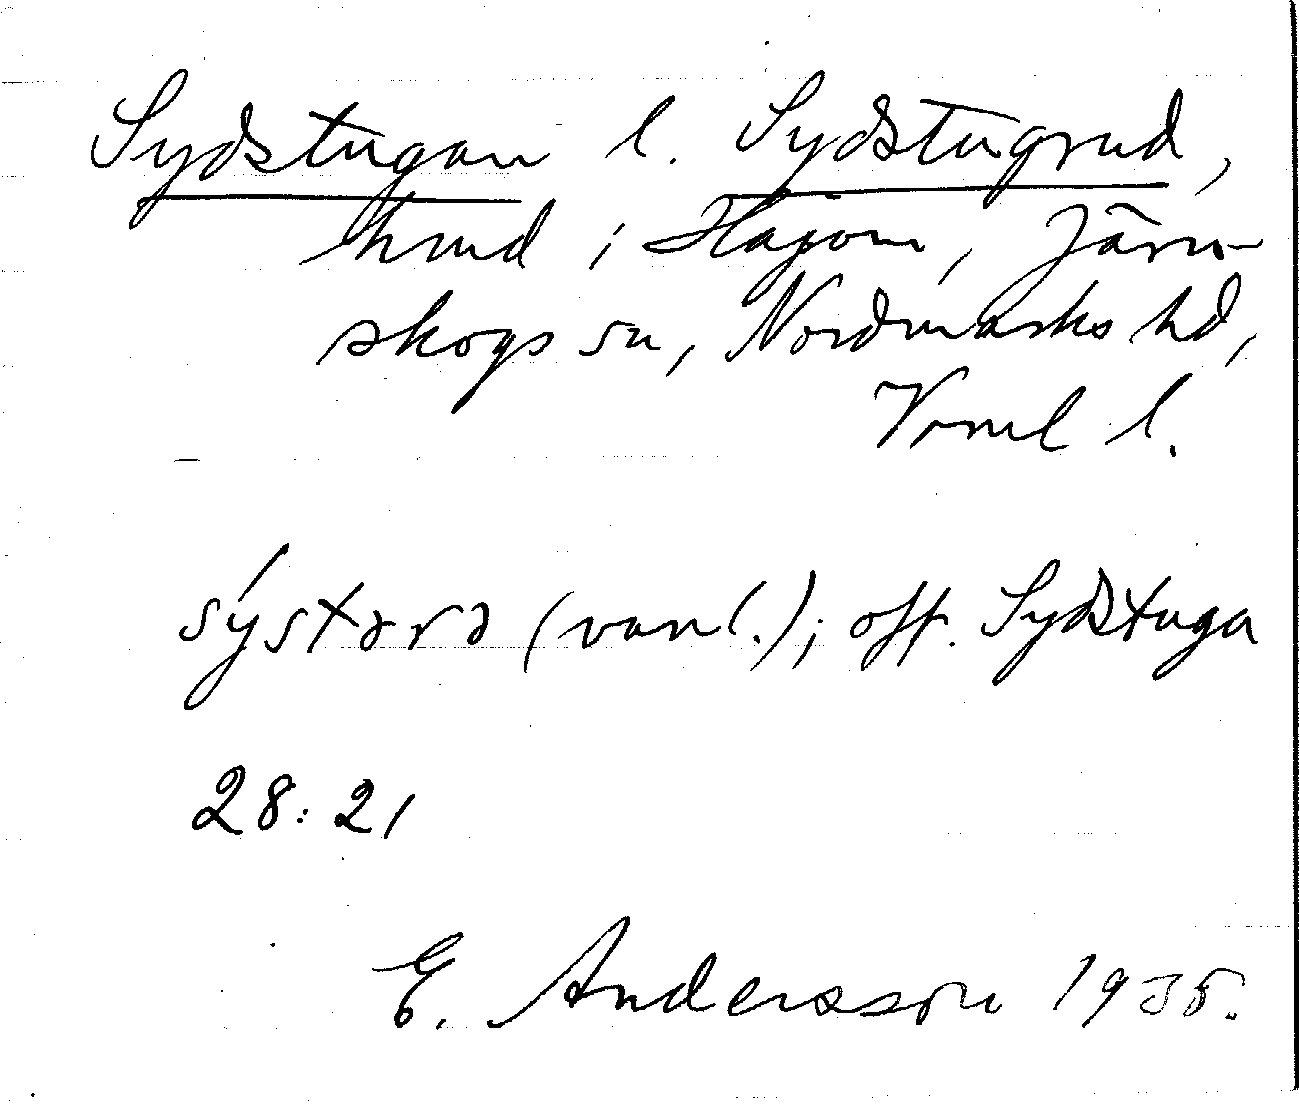 Sydstugan l. Sydstugrud,
hmd i Hajom, Järn-
skogs sn, Nordmarks hd,
Vrml l.
sýstərə (vanl.); off. Sydstuga
28:21
E. Andersson 1935.